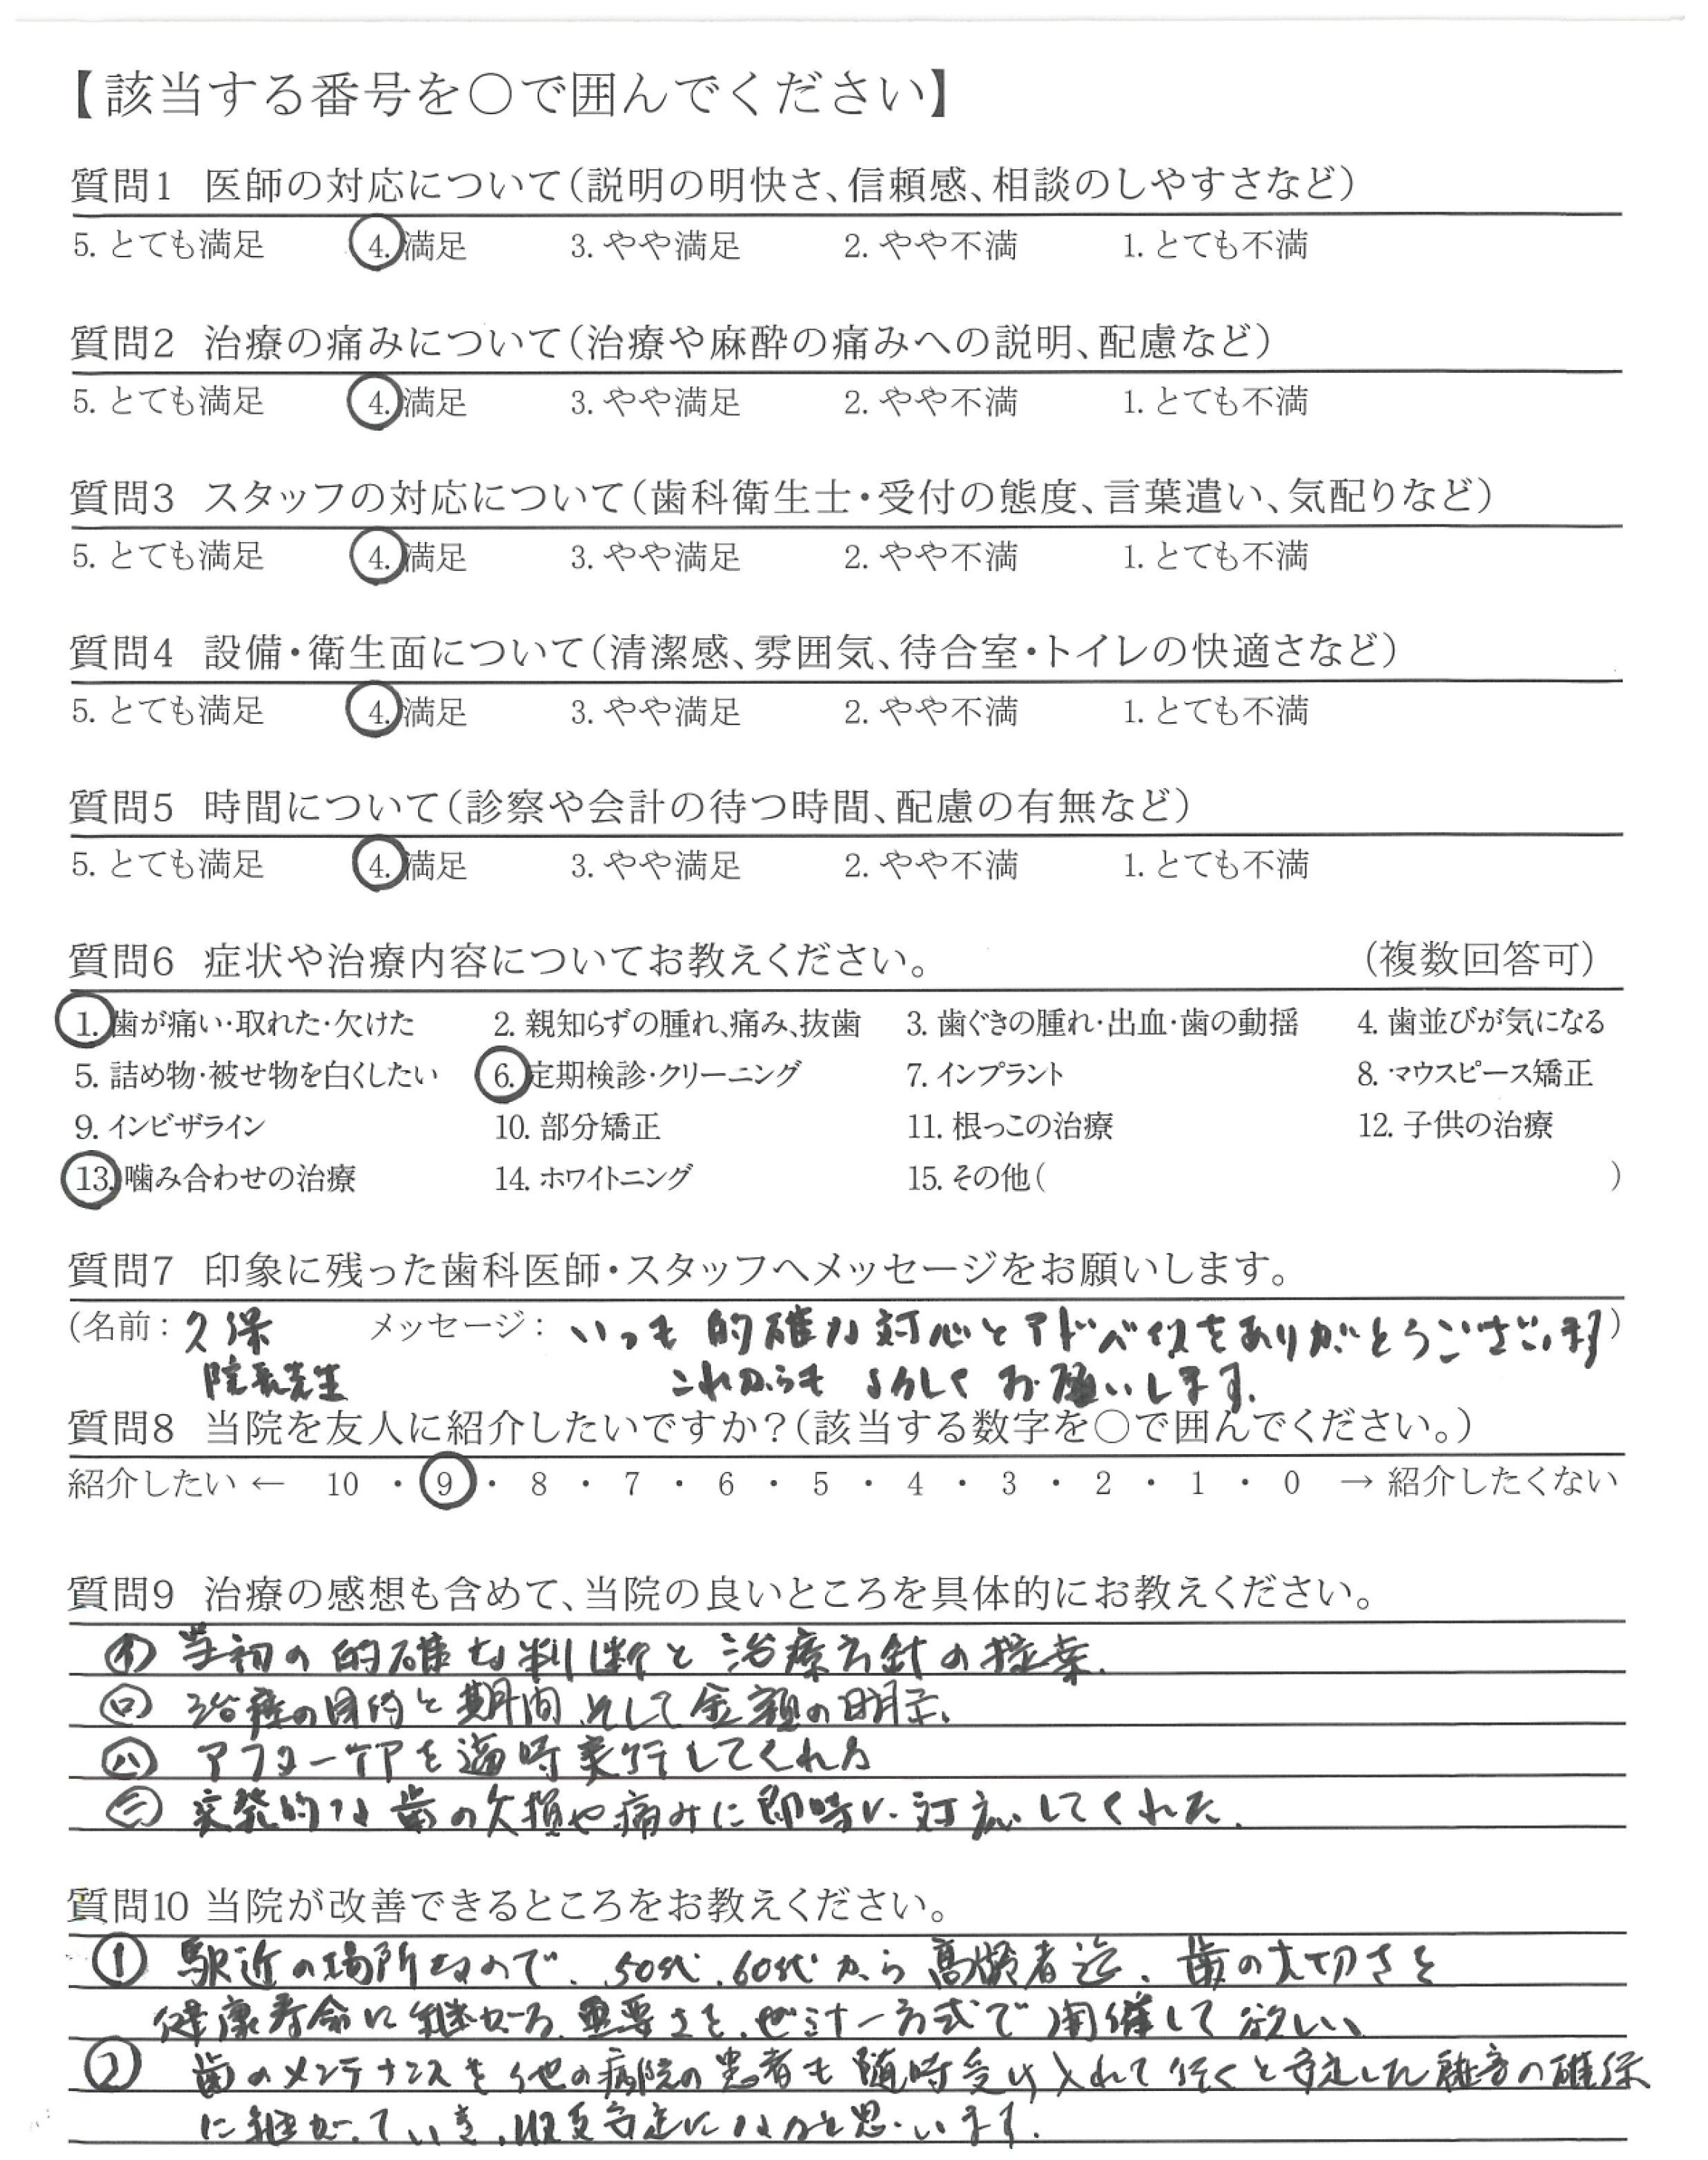 【該当する番号を〇で囲んでください】
質問1 医師の対応について（説明の明快さ、信頼感、相談のしやすさなど）
5. とても満足 4. 満足 3. やや満足 2. やや不満 1. とても不満
質問2 治療の痛みについて（治療や麻酔の痛みへの説明、配慮など）
5. とても満足 4. 満足 3. やや満足 2. やや不満 1. とても不満
質問3 スタッフの対応について（歯科衛生士・受付の態度、言葉遣い、気配りなど）
5. とても満足 4. 満足 3. やや満足 2. やや不満 1. とても不満
質問4 設備・衛生面について（清潔感、雰囲気、待合室・トイレの快適さなど）
5. とても満足 4. 満足 3. やや満足 2. やや不満 1. とても不満
質問5 時間について（診察や会計の待つ時間、配慮の有無など）
5. とても満足 4. 満足 3. やや満足 2. やや不満 1. とても不満
質問6 症状や治療内容についてお教えください。 （複数回答可）
1. 歯が痛い・取れた・欠けた 2. 親知らずの腫れ、痛み、抜歯 3. 歯ぐきの腫れ・出血・歯の動揺 4. 歯並びが気になる
5. 詰め物・被せ物を白くしたい 6. 定期検診・クリーニング 7. インプラント 8. マウスピース矯正
9. インビザライン 10. 部分矯正 11. 根っこの治療 12. 子供の治療
13. 噛み合わせの治療 14. ホワイトニング 15. その他（ ）
質問7 印象に残った歯科医師・スタッフへメッセージをお願いします。
（名前：久保 メッセージ：いつも的確な対応とアドバイスをありがとうございます）
院長先生 これからもよろしくお願いします。
質問8 当院を友人に紹介したいですか？（該当する数字を〇で囲んでください。）
紹介したい ← 10 ・ 9 ・ 8 ・ 7 ・ 6 ・ 5 ・ 4 ・ 3 ・ 2 ・ 1 ・ 0 → 紹介したくない
質問9 治療の感想も含めて、当院の良いところを具体的にお教えください。
㋑ 当初の的確な判断と治療方針の提案.
㋺ 治療の目的と期間、そして金額の明示、
㋩ アフターケアを適時実行してくれる
㋥ 突発的な歯の欠損や痛みに即時に対応してくれた.
質問10 当院が改善できるところをお教えください。
① 駅近の場所なので、50代、60代から高齢者迄、歯の大切さを
健康寿命に継がる、重要さを、セミナー方式で開催して欲しい、
② 歯のメンテナンスを他の病院の患者も随時受け入れて行くと安定した 確保
に継がっていき、収支安定になると思います.